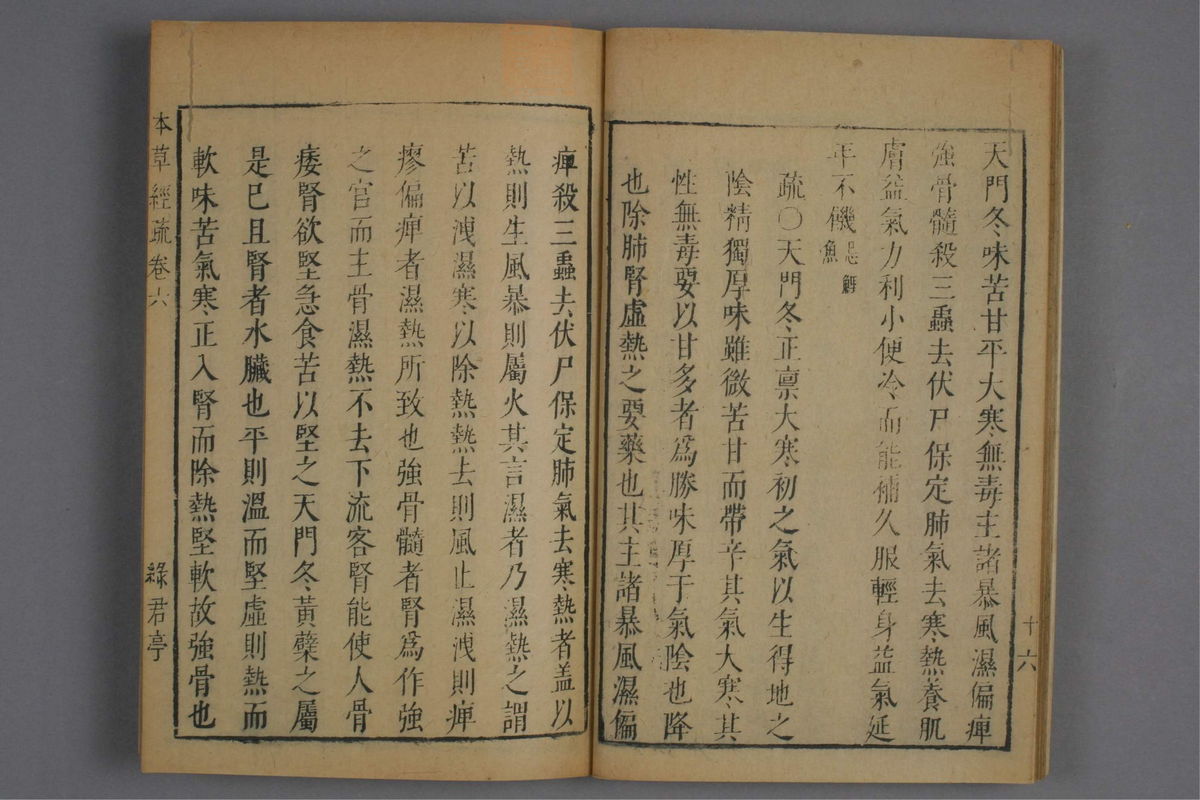 天門冬味苦甘平大寒無毒主諸暴風濕偏痺
強骨髓殺三蟲去伏尸保定肺氣去寒熱養肌
膚益氣力利小便冷而能補久服輕身益氣延
年不饑忌鯉魚
疏〇天門冬正禀大寒初之氣以生得地之
陰精獨厚味雖微苦甘而帶辛其氣大寒其
性無毒要以甘多者爲勝味厚于氣陰也降
也除肺腎虛熱之要藥也其主諸暴風濕偏
十六
痺殺三蟲去伏尸保定肺氣去寒熱者盖以
熱則生風暴則屬火其言濕者乃濕熱之謂
苦以洩濕寒以除熱熱去則風止濕洩則痺
瘳偏痺者濕熱所致也強骨髓者腎爲作強
之官而主骨濕熱不去下流客腎能使人骨
痿腎欲堅急食苦以堅之天門冬黃蘗之屬
是巳且腎者水臟也平則溫而堅虛則熱而
軟味苦氣寒正入腎而除熱堅軟故強骨也
本草經疏卷六
綠君亭